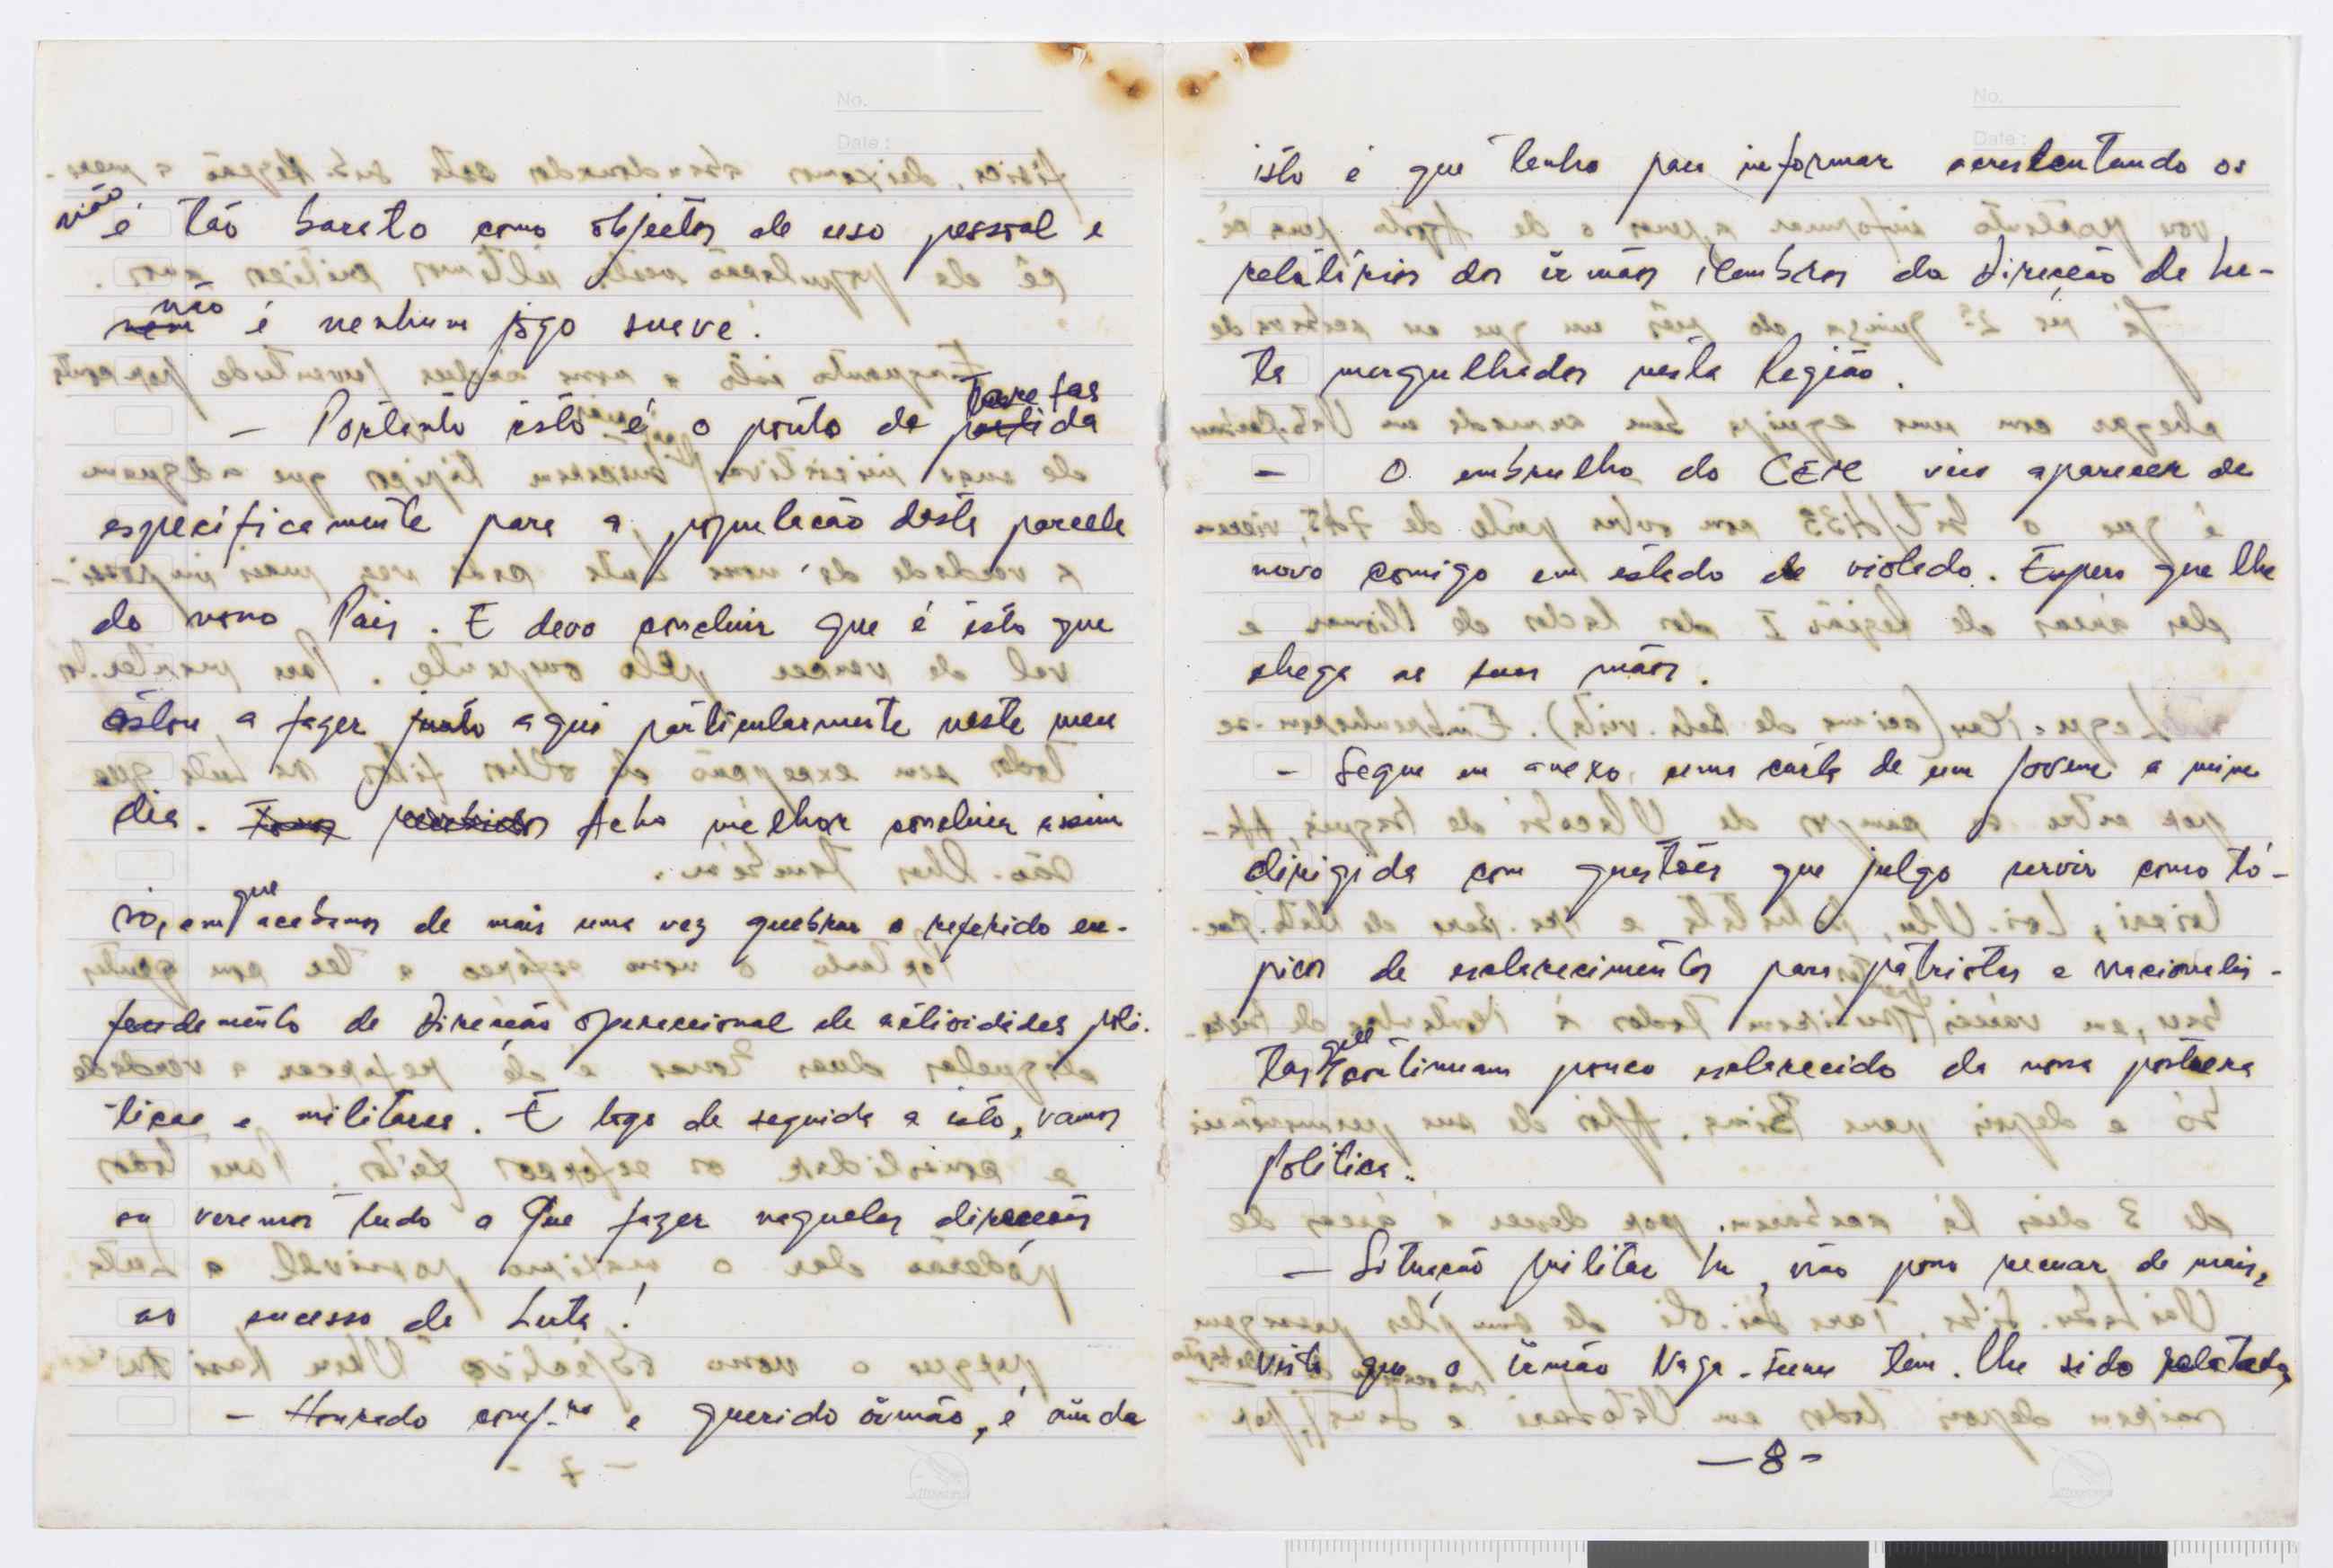 No.
Date:
não é tão barato como objectos de uso pessoal e
não
nem é nenhum jogo suave.
tarefas
- Portanto isto é o ponto de partida
especificamente para a população desta parcela
do nosso País. E devo concluir que é isto que
estou a fazer junto aqui particularmente neste meu
dia. Acho melhor concluir assim
só, em que acabamos de mais uma vez quebrar o referido en-
fendemento de Direcção operaccional de actividades poli-
ticas e militares. E logo de seguida a isto, vamos
ou veremos tudo o Que fazer naquelas direcções
ao sucesso da Luta!
- Honrado comp.ro e querido irmão, é ainda
No.
Date:
isto é que tenho para informar acrescentando os
relátórios dos irmãos Membros da Direcção de Lu-
ta mergulhados nesta Região.
- O embrulho do CEM veio aparecer de
novo comigo em estado de violado. Espero que lhe
chega as suas mãos.
- Segue em anexo uma carta de um jovem a mim
dirigida com questões que julgo servir como tó-
picos de esclarecimentos para patriotas e nacionalis-
tas que continuam pouco esclarecido da nossa postura
politica.
- Situação militar hu, não posso recuar de mais,
visto que o irmão Naga-sunu tem-lhe sido relatada,
- 8 -